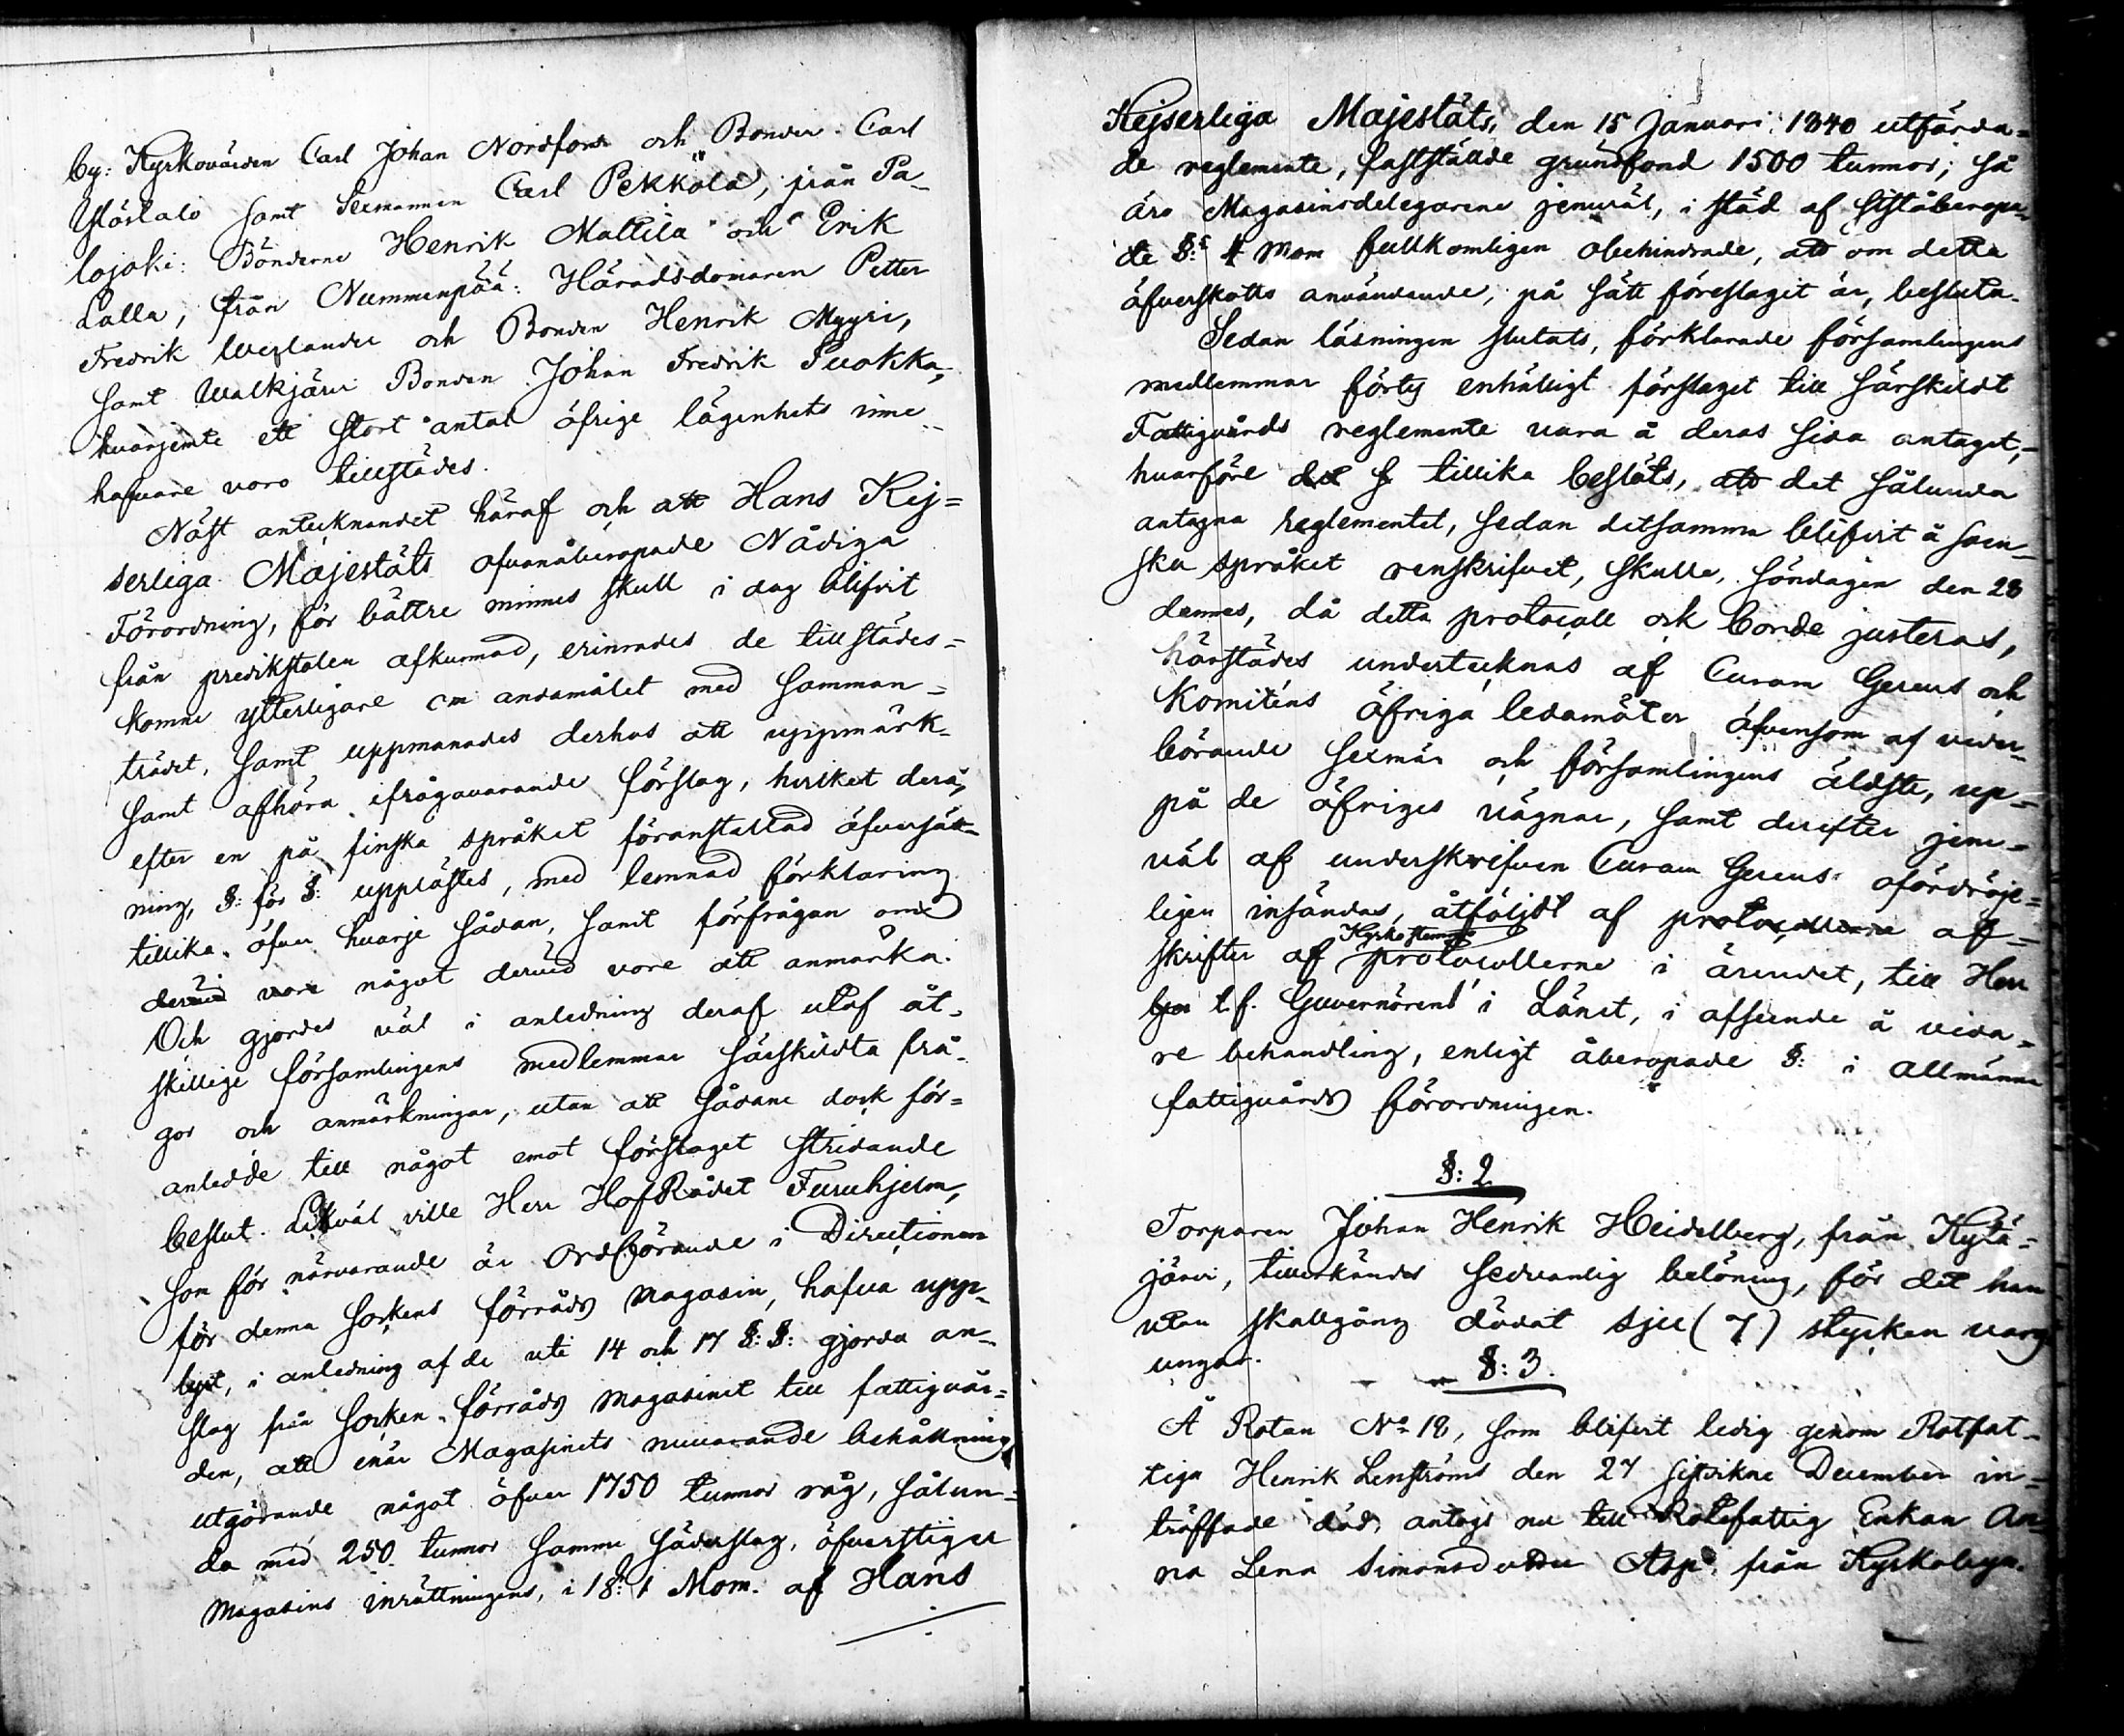 by: Kyrkovärden Carl Johan Nordfors och Bonden Carl
Yöstalo samt Sexmannen Carl Pekkola, från Pa-
lojoki: Bönderne Henrik Mattila och Erik
Lalla, från Nummenpää: Häradsdomaren Petter
Fredrik Weglander och Bonden Henrik Myyri,
samt Walkjärvi Bonden Johan Fredrik Puokka,
hvarjemte ett stort antal öfrige lägenhets inne-
hafvare voro tillstädes.
Näst antecknandet häraf och att Hans Kej=
serliga Majestäts ofvanåberopade Nådiga
Förordning, för bättre minnes skull i dag blifvit
från predikstolen afkunnad, erinrades de tillstädes=
komne ytterligare om ändamålet med samman=
trädet, samt uppmanades derhos att uppmärk-
samt afhöra ifrågavarande förslag, hvilket der-
efter en på finska språket föranstaltad öfversätt-
ning, §: för §: upplästes, med lemnad förklaring
tillika öfver hvarje sådan, samt förfrågan om
dervid vore något dervid vore att anmärka.
Och gjordes väl i anledning deraf utaf åt-
skillige församlingens medlemmar särskildta frå-
gor och anmärkningar, utan att sådane dock för=
anledde till något emot förslaget stridande
beslut. Likväl ville Herr HofRådet Furuhjelm,
som för närvarande är Ordförande i Directionen
för denna Sockens förråds Magasin, hafva upp-
lyst, i anledning af de uti 14 och 17 §:§: gjorda an-
slag från Socken förråds Magasinet till fattigvår=
den, att enär Magasinets nuvarande behållning
utgörande något öfver 1750 tunnor råg, sålun=
da med 250 tunnor samma sädesslag, öfverstiger
Magasins inrättningens, i 1§: 1 Mom. af Hans
Kejserliga Majestäts, den 15 Januari 1840 utfärda=
de reglemente, fastställde grundfond 1500 tunnor; så
äro Magasinsdelegarene jemväl, i stöd af siståberopa-
de §:s 4 Mom fullkomligen obehindrade, att om detta
öfverskotts användande, på sätt föreslaget är, besluta.
Sedan läsningen slutats, förklarade församlingens
medlemmar förty enhälligt förslaget till särskildt
Fattigvårds reglemente vara å deras sida antaget,
hvarföre det tillika beslöts, att det sålunda
antagna reglementet, sedan detsamma blifvit å sven-
ska språket renskrifvet, skulle, söndagen den 28
dennes, då detta protocoll ock borde justeras,
härstädes undertecknas af Curam Gerens och
Komiténs öfriga ledamöter äfvensom af veder-
börande Sexmän och församlingens äldste, up-
på de öfriges vägnar, samt derefter jem-
väl af underskrifven Curam Gerens ofördröje=
ligen insändas, åtföljdt af protocollerne af-
skrifter af Kyrkostemmo protocollerne i ärendet, till Herr
t.f. Guvernören i Länet, i afseende å vida-
re behandling, enligt åberopade §: i allmänna
fattigvårds förordningen.
§: 2
Torparen Johan Henrik Heidelberg, från Kytä=
järvi, tillerkändes sedvanlig belöning, för det han
utan skallgång dödat sju (7) stycken varg
ungar.
§: 3.
Å Rotan No 18, som blifvit ledig genom Rotfat-
tiga Henrik Lenströms den 27 sistvikne December in=
träffade död, antogs nu till Rotefattig Enkan An-
na Lena Simonsdotter Asp från Kyrkobyn.